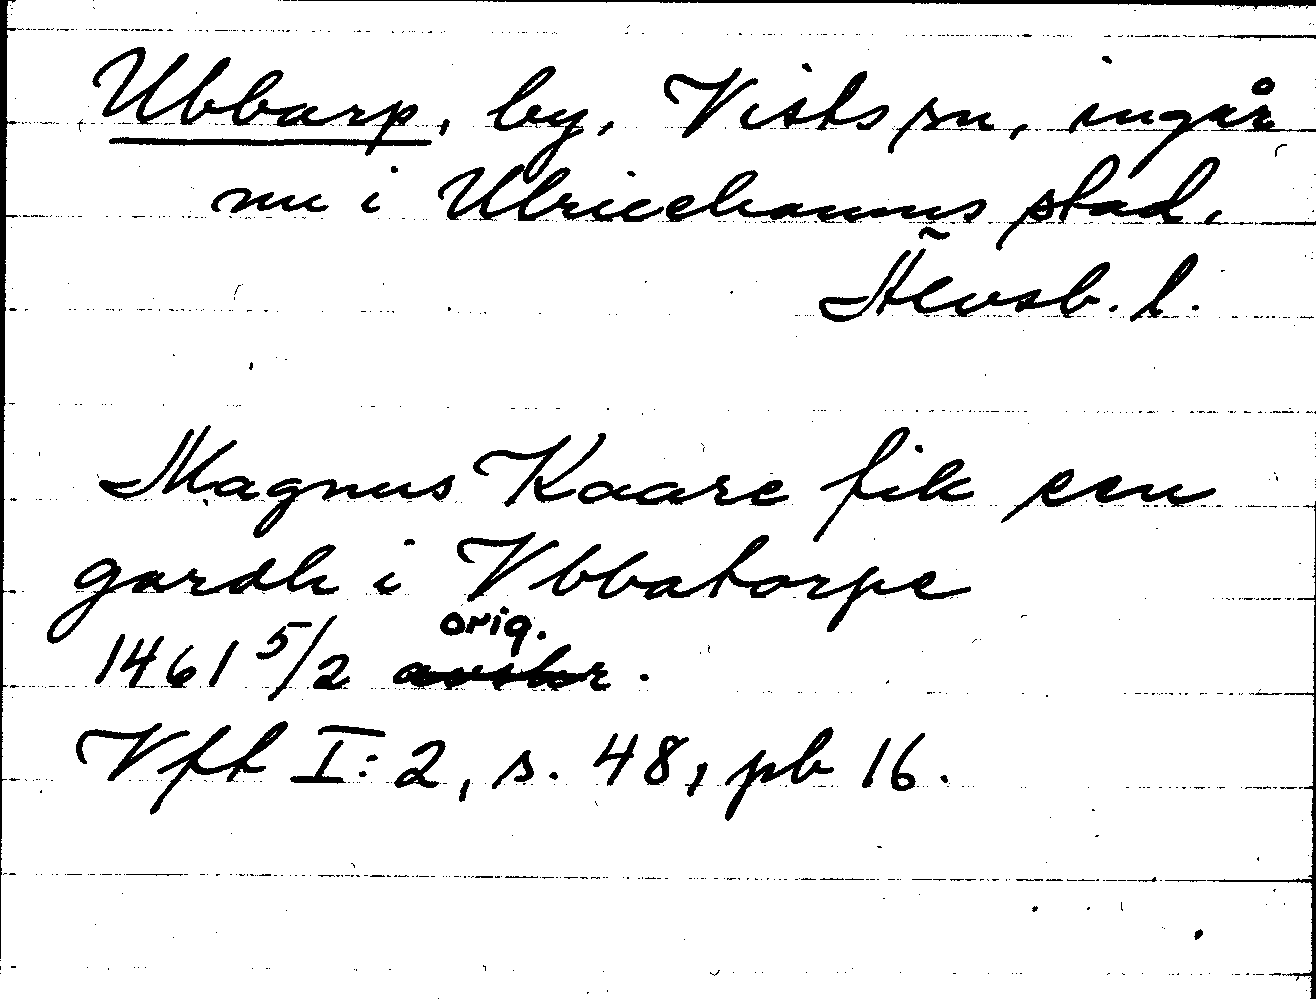 Ubbarp, by, Vists sn, ingår
nu i Ulricehamns stad.
Älvsb. l.
Magnus Kaare fik een
gardh i Vbbatorpe
orig.
1461 5/2 avskr.
Vff I:2, s. 48, pb 16.